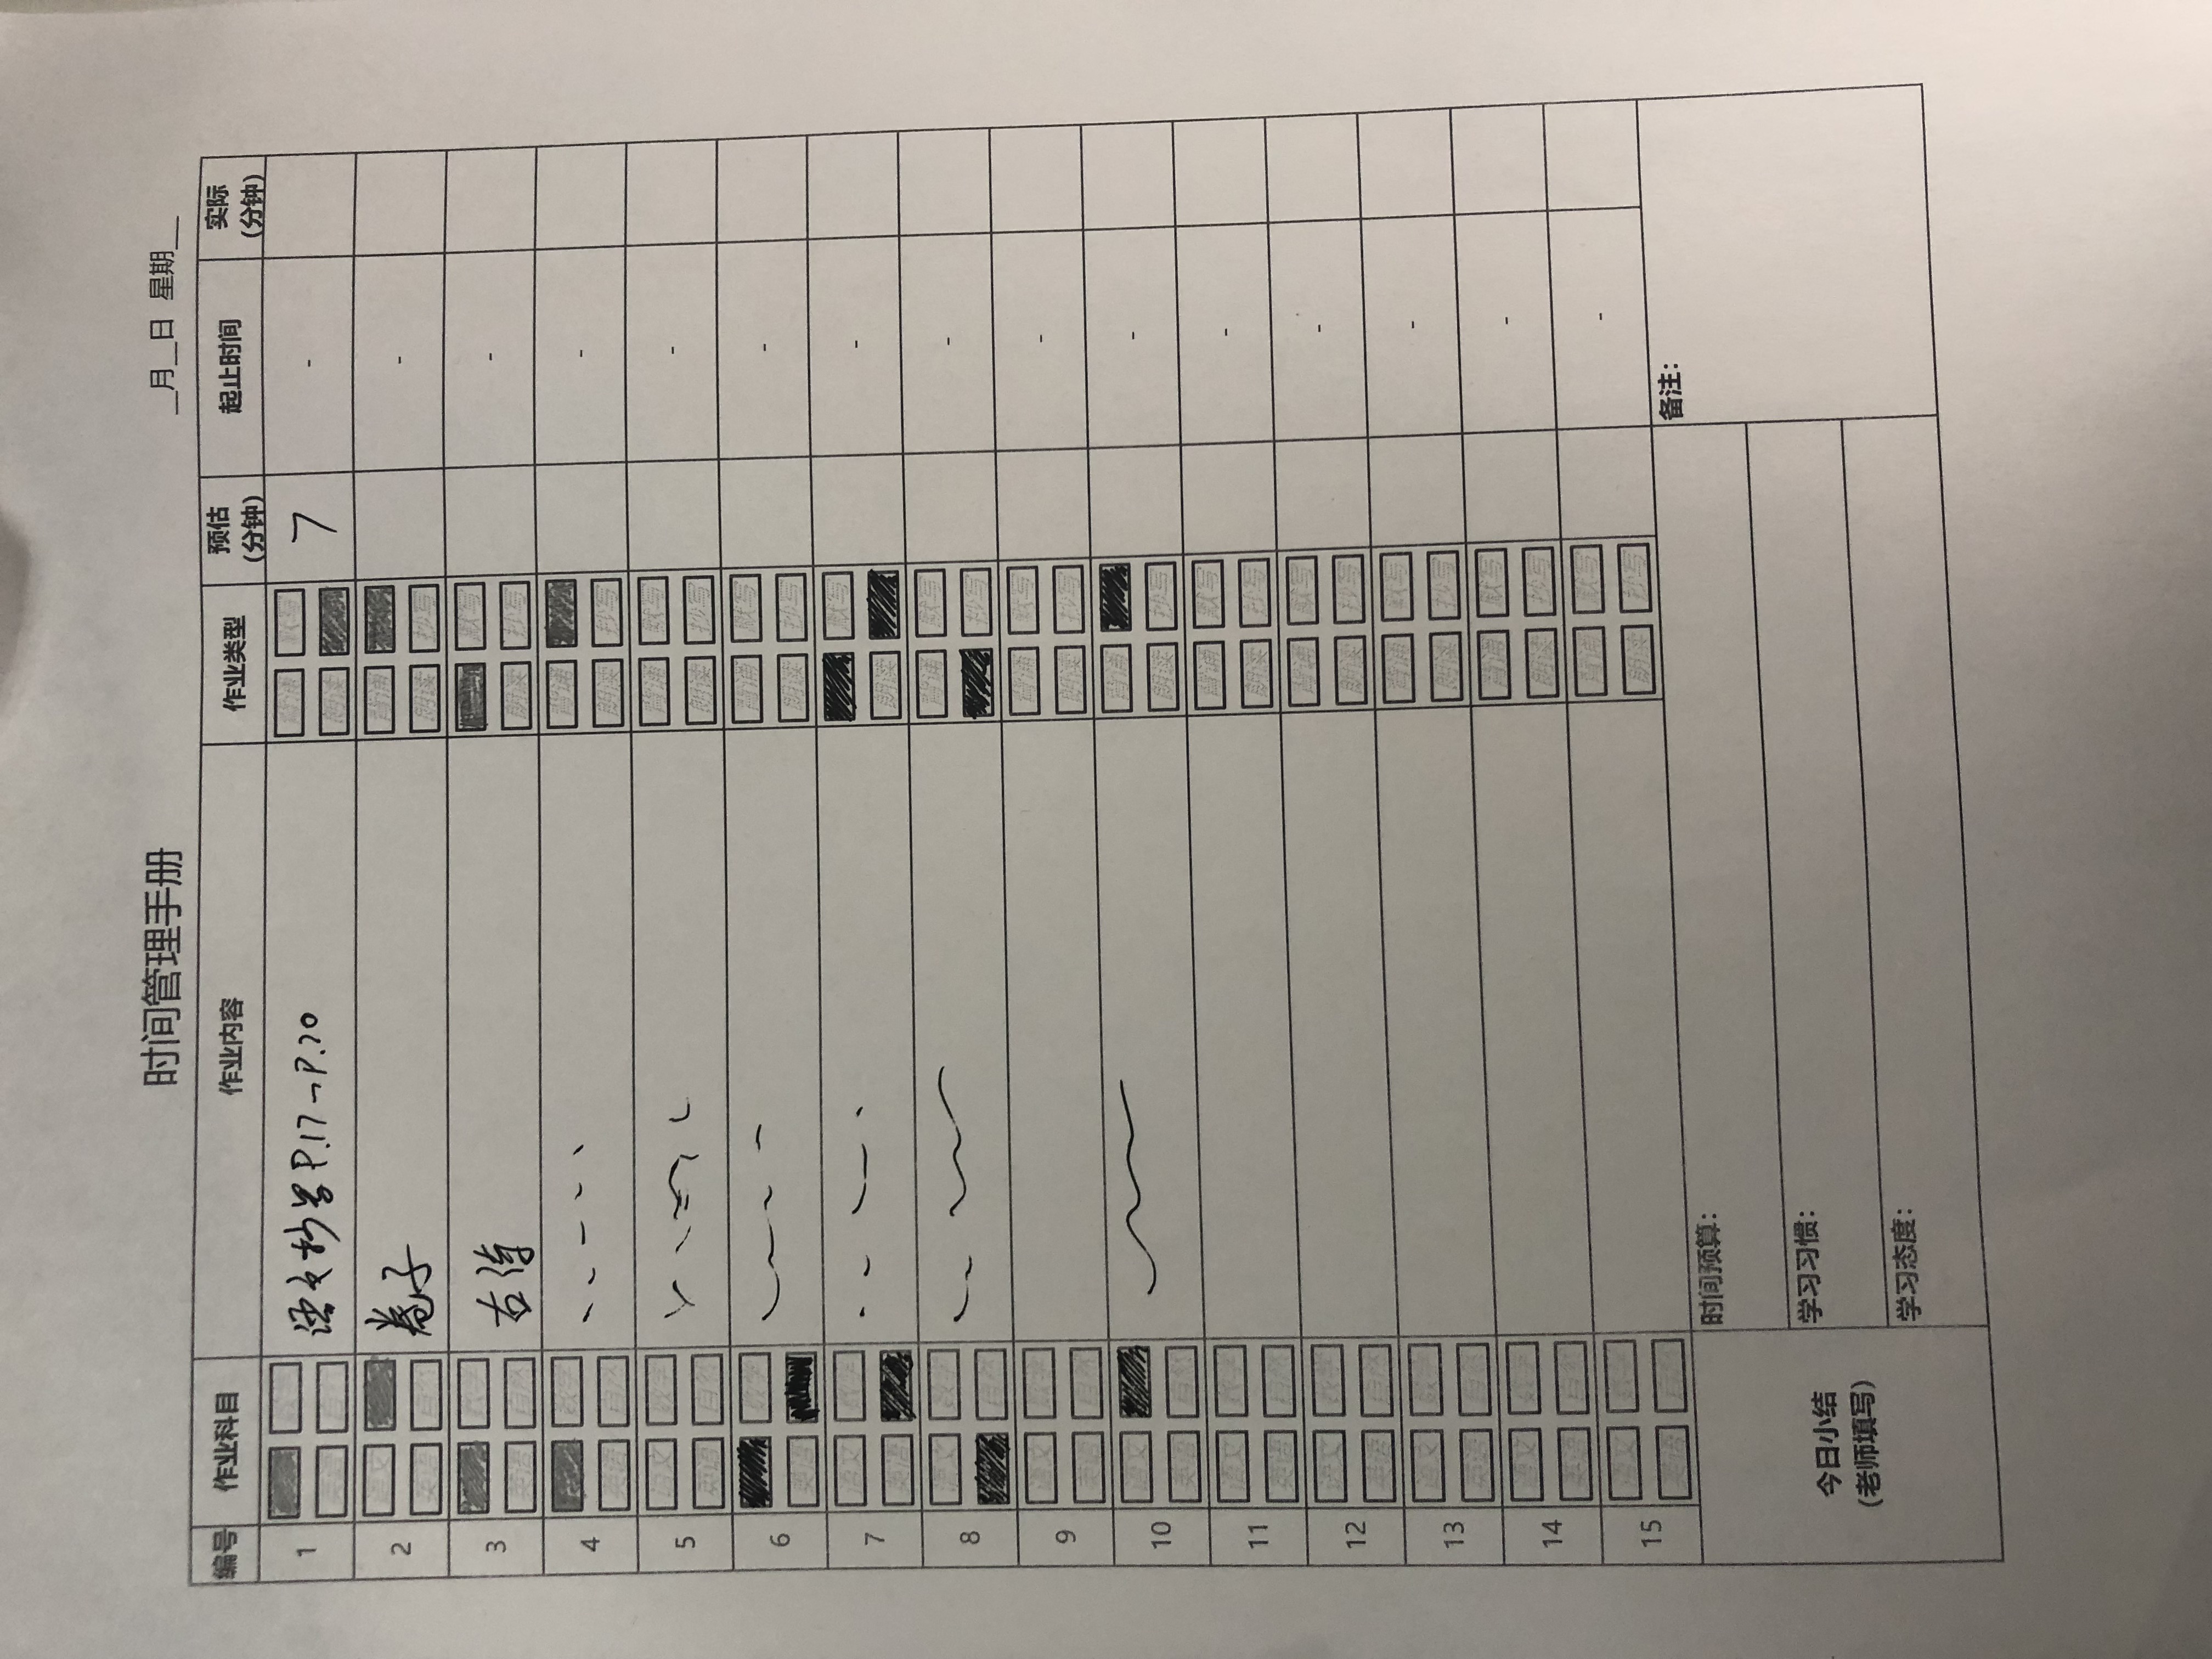 时间管理手册
__月__日 星期___
编号 作业科目 作业内容 作业类型 预估(分钟) 起止时间 实际(分钟)
1 数学 英语 自然 语文抄写P.17-P.20 背诵 默写 朗读 7 -
2 语文 英语 自然 卷子 背诵 朗读 抄写 -
3 数学 英语 自然 古诗 默写 朗读 抄写 -
4 数学 英语 自然 背诵 朗读 抄写 -
5 语文 数学 英语 自然 背诵 默写 朗读 抄写 -
6 数学 英语 背诵 默写 朗读 抄写 -
7 语文 数学 英语 默写 朗读 -
8 语文 数学 自然 背诵 默写 抄写 -
9 语文 数学 英语 自然 背诵 默写 朗读 抄写 -
10 语文 英语 自然 背诵 朗读 抄写 -
11 语文 数学 英语 自然 背诵 默写 朗读 抄写 -
12 语文 数学 英语 自然 背诵 默写 朗读 抄写 -
13 语文 数学 英语 自然 背诵 默写 朗读 抄写 -
14 语文 数学 英语 自然 背诵 默写 朗读 抄写 -
15 语文 数学 英语 自然 背诵 默写 朗读 抄写 -
今日小结
(老师填写)
时间预算：
学习习惯：
学习态度：
备注：